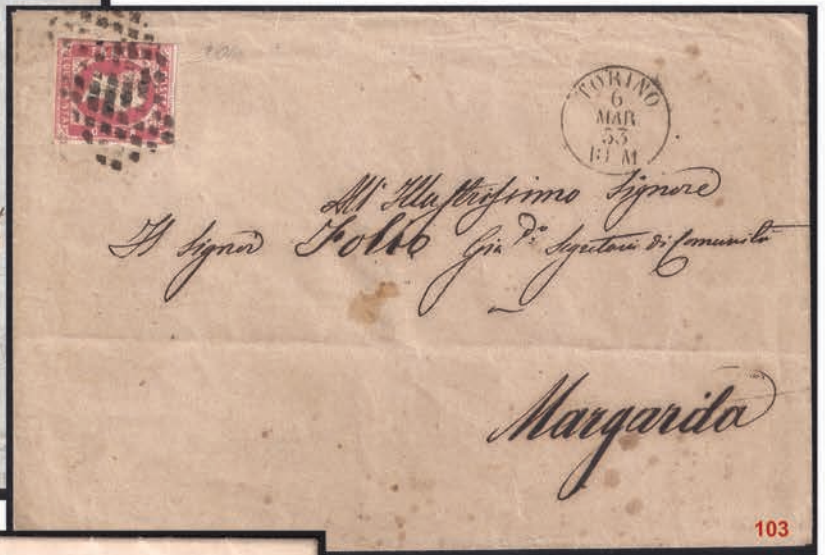 TORINO
6
MAR
53
All' Illustrissimo Signore
Il Signor Folco Gia Segretario di Comunità
Margarita
103